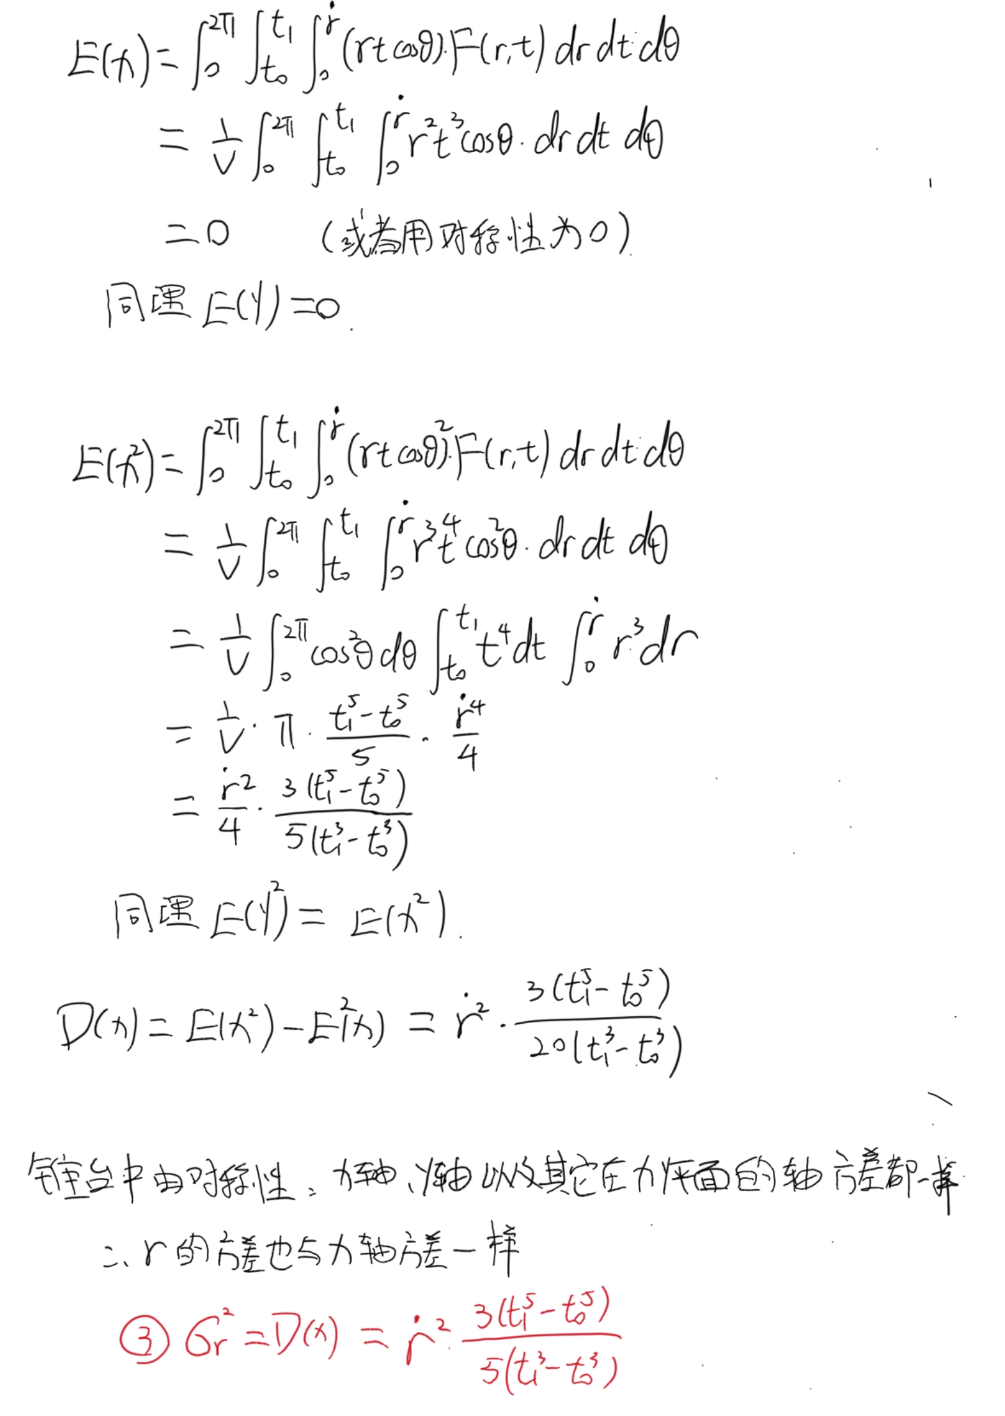 E(x) = ∫₀^{2π} ∫_{t₀}^{t₁} ∫₀^{ṙ} (rt cosθ)·F(r,t) dr dt dθ
= 1/V ∫₀^{2π} ∫_{t₀}^{t₁} ∫₀^{ṙ} r²t³cosθ · dr dt dθ
= 0 (或者用对称性为0)
同理 E(y) = 0.
E(x²) = ∫₀^{2π} ∫_{t₀}^{t₁} ∫₀^{ṙ} (rt cosθ)²·F(r,t) dr dt dθ
= 1/V ∫₀^{2π} ∫_{t₀}^{t₁} ∫₀^{ṙ} r³t⁴cos²θ · dr dt dθ
= 1/V ∫₀^{2π} cos²θ dθ ∫_{t₀}^{t₁} t⁴dt ∫₀^{ṙ} r³dr
= 1/V · π · (t₁⁵-t₀⁵)/5 · ṙ⁴/4
= ṙ²/4 · 3(t₁⁵-t₀⁵)/5(t₁³-t₀³)
同理 E(y²) = E(x²).
D(x) = E(x²) - E²(x) = ṙ² · 3(t₁⁵-t₀⁵)/20(t₁³-t₀³)
锥台中由对称性, x轴、y轴以及其它在xy平面的轴方差都一样
∴ r的方差也与x轴方差一样
③ σr² = D(x) = ṙ² 3(t₁⁵-t₀⁵)/5(t₁³-t₀³)